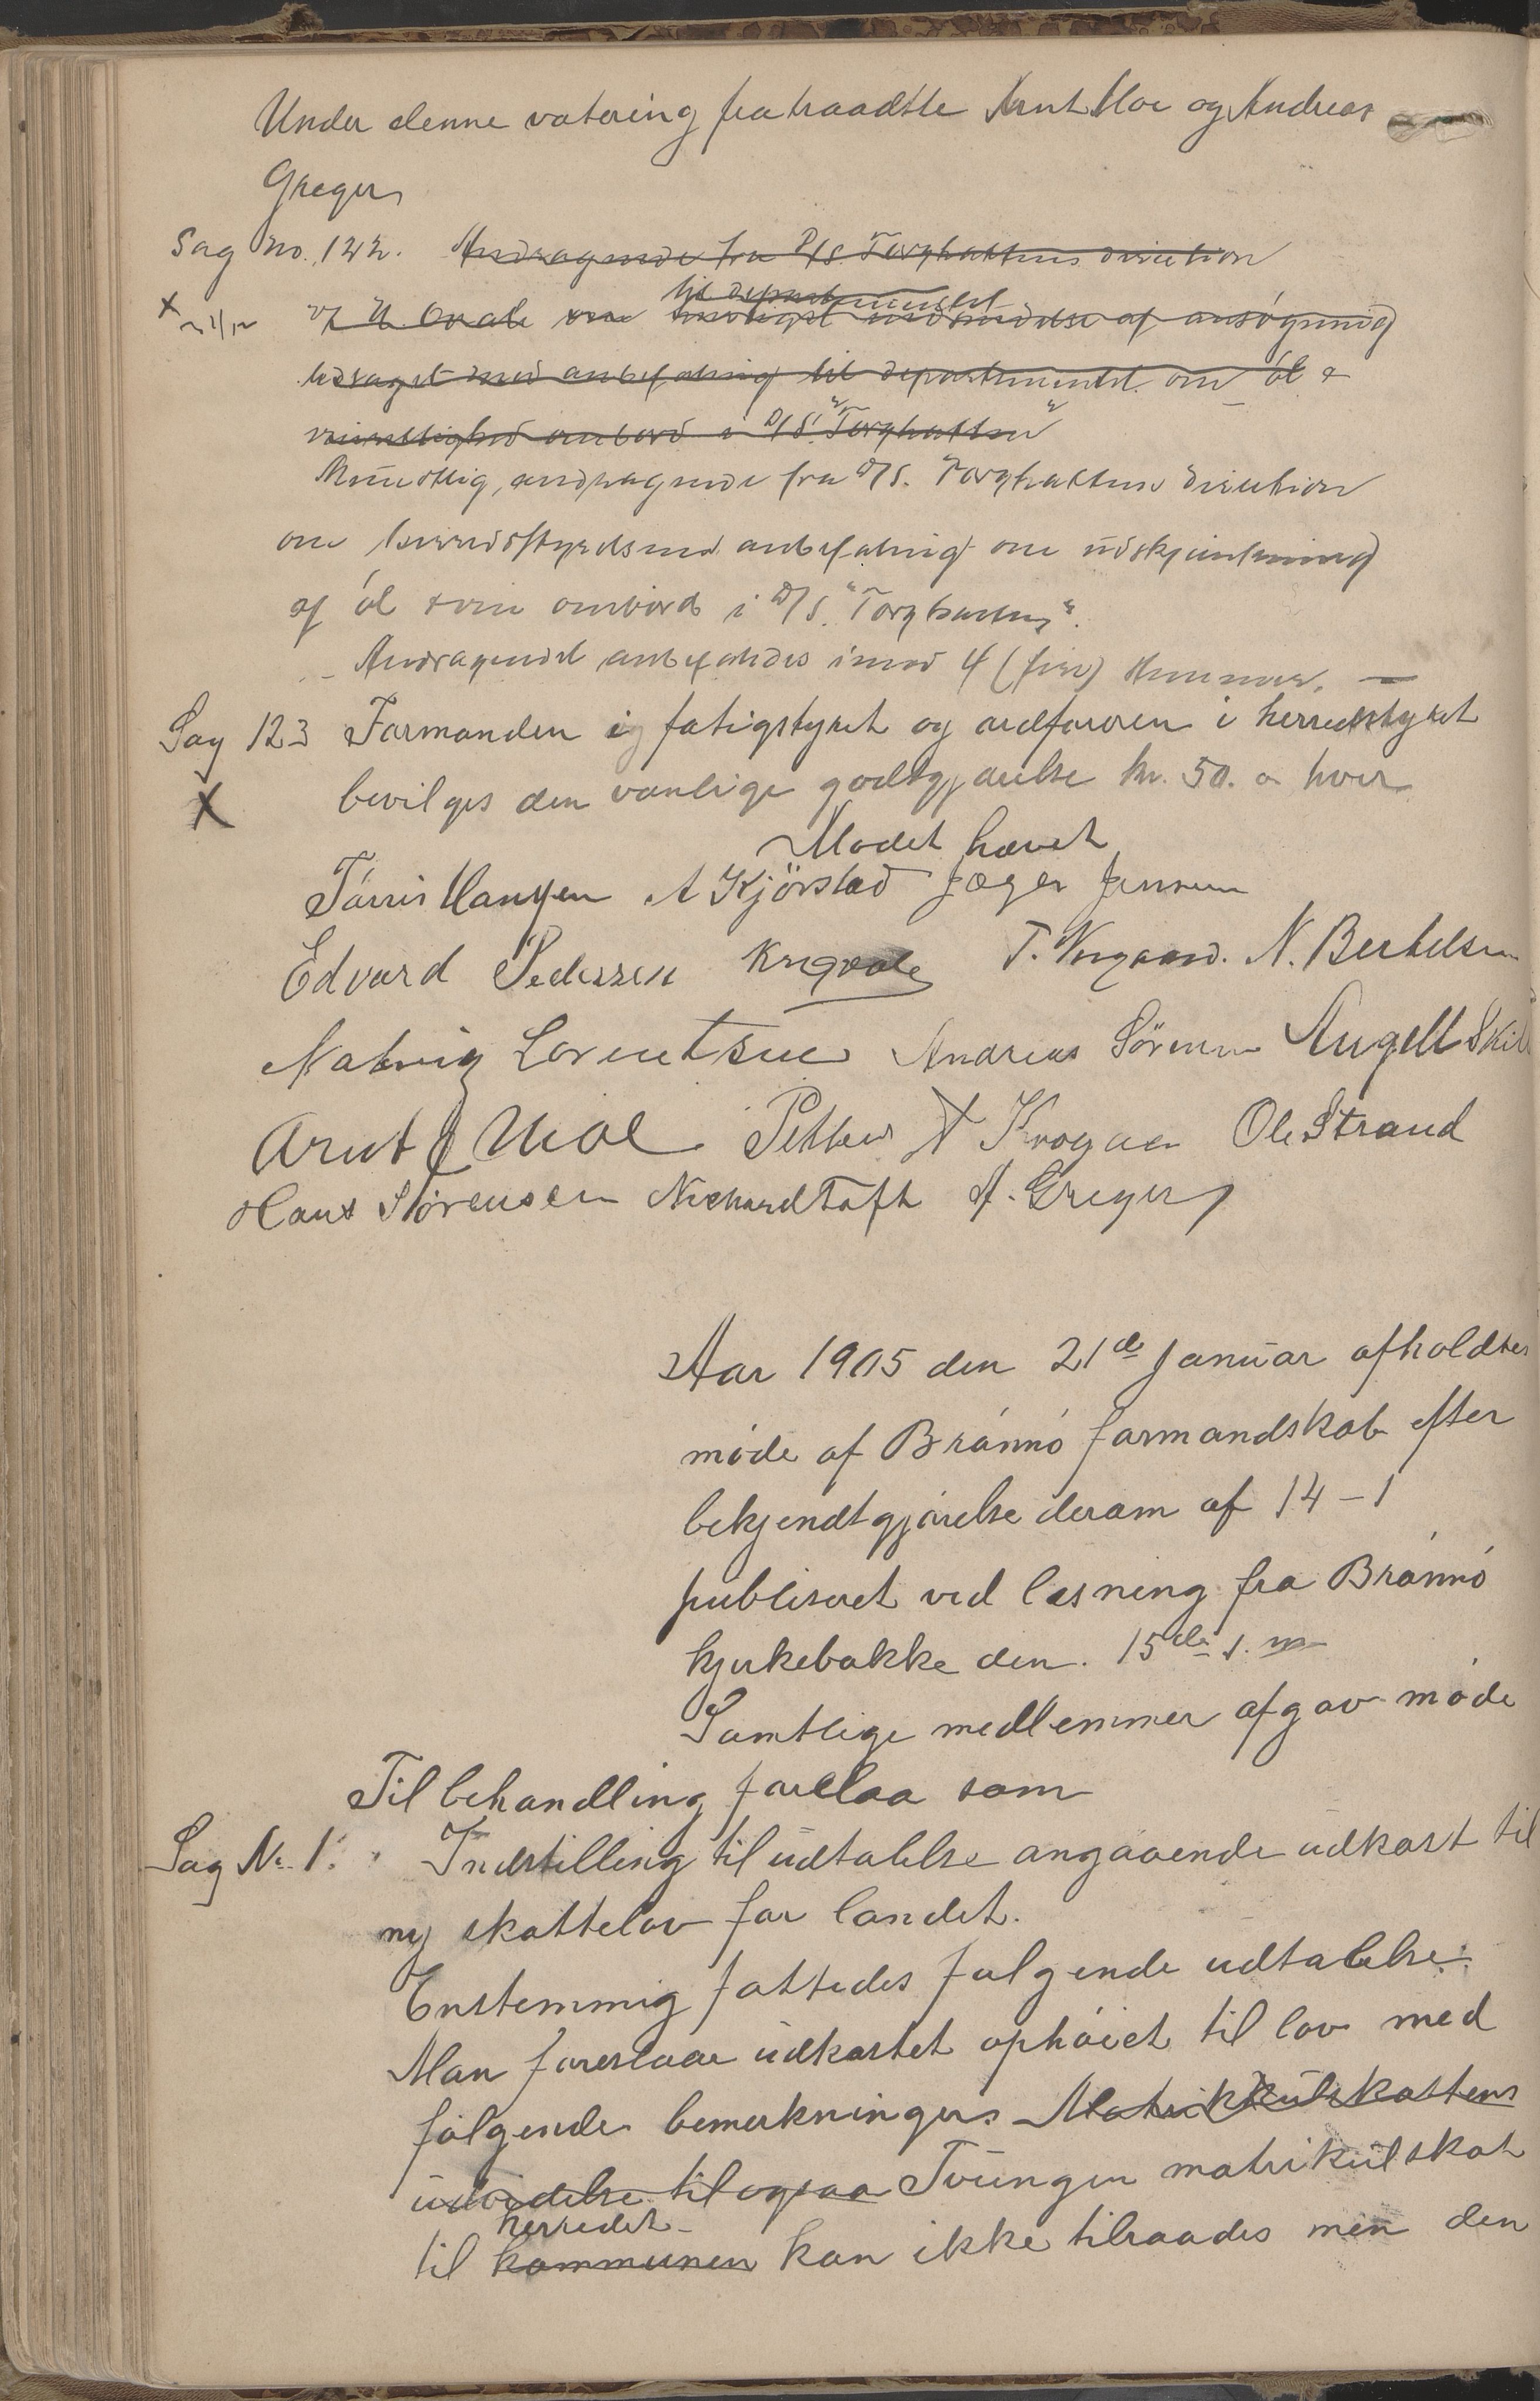 Under denne votering fratraadte Arnt Moe og Andreas
Gregers
Sag No. 122. Andragende fra D/S. Torghattens direktion
til departementet
ansøgning
andraget med anbefaling til departementet om øl &
ombord i D/S. "Torghatten"
Mundtlig, andragende fra D/S. Torghattens direktion
om herredsstyrets anbefaling om udskjænkning
af øl & vin ombord i D/S. "Torghatten".
Andragendet anbefaledes imod 4 (fire) stemmer. —
Sag 123 Formanden i fatigstyret og ordføreren i herredsstyret
X bevilges den vanlige godtgjørelse kr. 50. a hver
Mødet hævet
Tørris Hansen A Kjørstad Jæger Jensen
Edvard Pedersen T. N. Bertelsen
Lorentsen Andreas Sörensen Angell
Arnt J Moe Petter A Krogaa Ole Strand
Hans Sörensen Richard Toft A. Gregers
Aar 1905 den 21de Januar afholdtes
møde af Brønnø formandskab efter
bekjendtgjørelse derom af 14 – 1
publiseret ved læsning fra Brønnø
kjirkebakke den. 15de s. m
Samtlige medlemmer afgav møde
Til behandling forelaa som
Sag No. 1. Indstilling til udtalelse angaaende udkast til
ny skattelov for landet.
Enstemmig fattedes følgende udtalelse:
Man foreslaar udkastet ophøiet til lov med
følgende bemerkninger. Matrikkulskattens
udvidelse til ogsaa Tvungen matrikulskat
herredet
til kommunen kan ikke tilraades men den